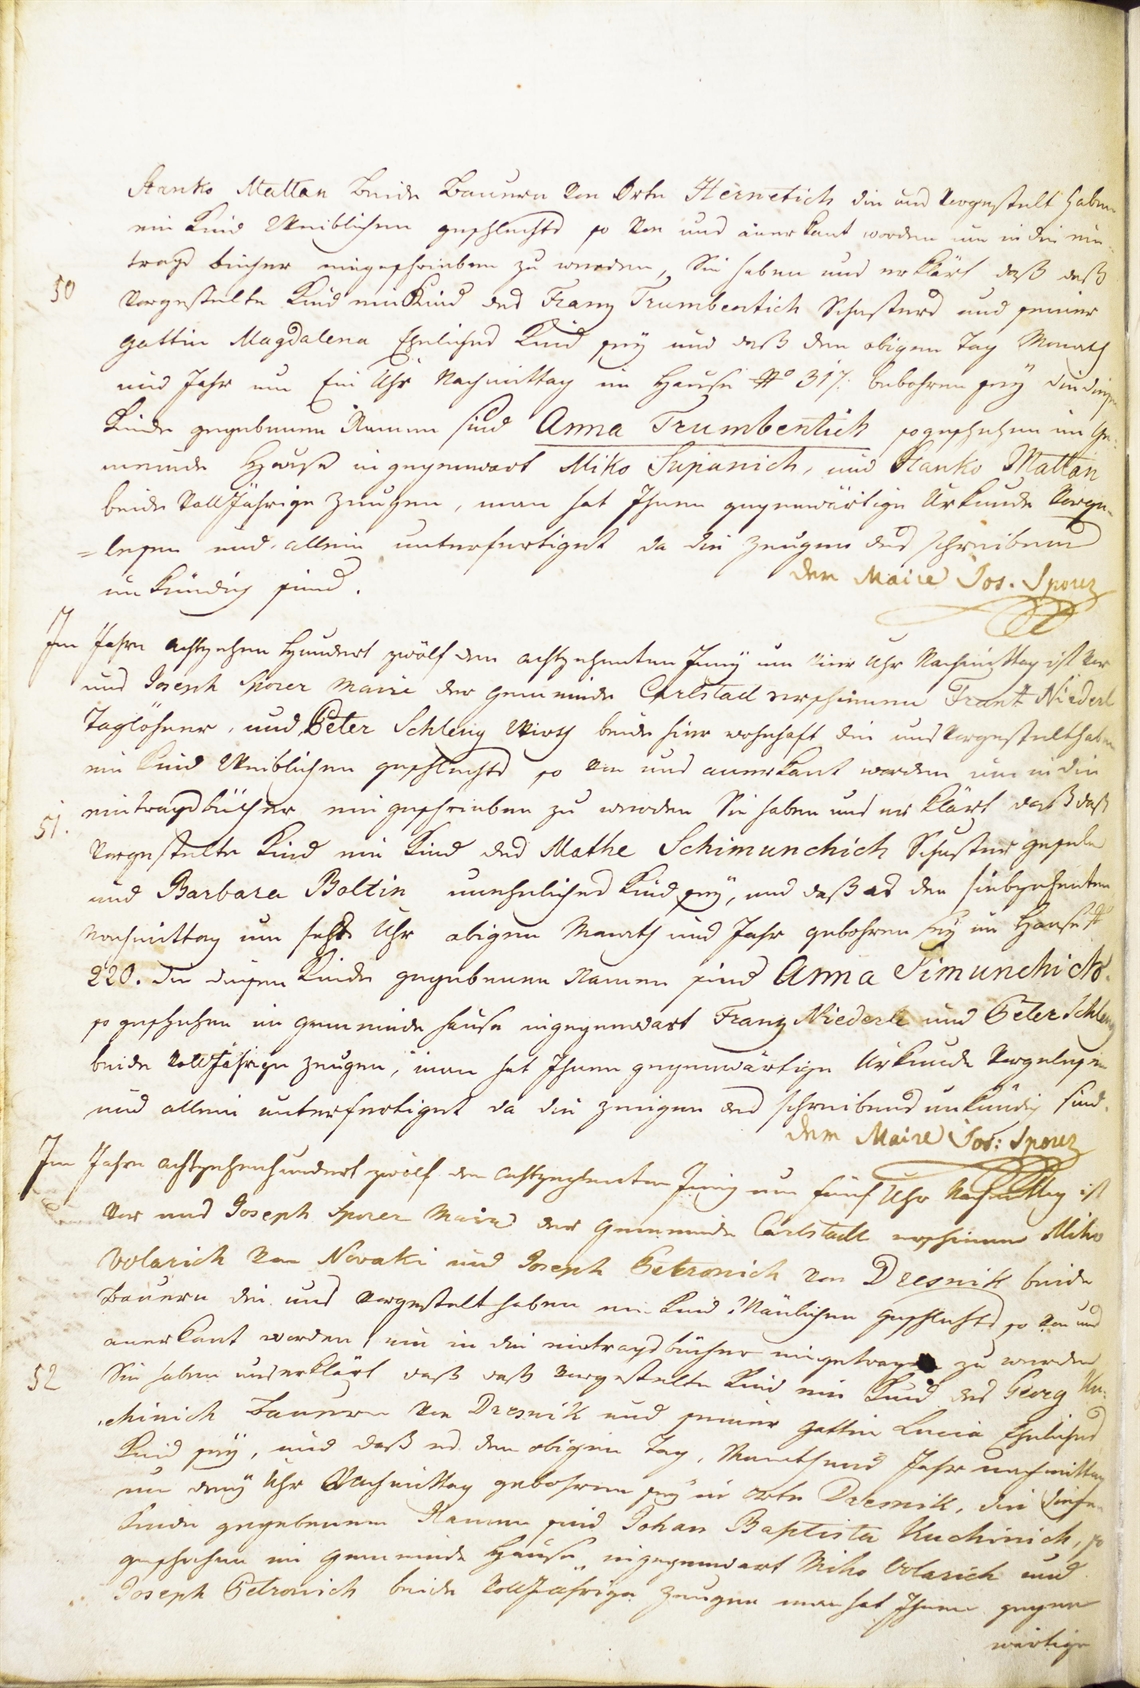 Stanko Mattan beide Bauern von Orte Hernetich die uns Vorgestelt haben
ein Kind Weiblichen geschlechts so von uns anerkant worden um in die ein-
trags bücher eingeschrieben zu werden, Sie haben uns erklärt daß daß
50
Vorgestelte Kind ein Kind des Franz Trumbentich Schusters und seiner
gattin Magdalena Ehliches Kind sey und daß den obigen Tag Monath
und Jahr um Ein Uhr Nachmittag im Hause No 317. gebohren sey die diesen
Kinde gegebenen Namen sind Anna Trumbentich so geschehen im Ge-
meinde Hause in gegenwart Miko Supanich, und Stanko Mattan
beide Volljährige Zeugen, man hat Ihnen gegenwärtige Urkunde Vorge-
=lesen und allein unterfertiget da die Zeugen des schreibens
unkündig sind.
der Maire Jos. Sporer
Im Jahre achtzehen Hundert zwölf den achtzehenten Juny um vier Uhr Nachmittag ist vor
uns Joseph Sporer Maire der gemeinde Carlstadt erschienen Frantz Niederl
Taglöhner, und Peter Schleng Wirth beide hier wohnhaft die uns Vorgestelt haben
ein Kind Weiblichen geschlechts so von uns anerkant worden um in die
eintragsbücher eingeschrieben zu werden Sie haben uns erklärt daß daß
51.
Vorgestelte Kind ein Kind des Mathe Schimunchich Schuster gesele
und Barbara Boltin unehliches Kind sey, und daß es den siebzehenten
Nachmittag um sechs Uhr obigen Monath und Jahr gebohren sey im Hause No
220. die diesen Kinde gegebenen Namen sind Anna Simunchich.
so geschehen im gemeinde hause in gegenwart Franz Niederle und Peter Schleng
beide Volljährige Zeugen, man hat Ihnen gegenwärtige Urkunde Vorgelesen
und allein unterfertiget da die Zeugen des schreibens unkündig sind.
der Maire Jos: Sporer
Im Jahre achtzehenhundert zwölf den achtzehenten Juny um fünf Uhr Nachmittag ist
vor uns Joseph Sporer Maire der Gemeinde Carlstadt erschienen Miho
Volarich von Novaki und Joseph Petronich von Dresnik beide
Bauern die uns Vorgestelt haben ein Kind Mänlichen geschlechts so von uns
anerkant worden um in die eintragsbücher eingetragen zu werden
52
Sie haben uns erklärt daß daß Vorgestelte Kind ein Kind des Georg Ku-
chinich Bauern von Dresnik und seiner gattin Lucia Ehliches
Kind sey, und daß es den obigen Tag, Monath und Jahr nachmittag
um drey Uhr Nachmittag gebohren sey in Orte Dresnik, die diesen
Kinde gegebenen Namen sind Johan Baptista Kuchinich, so
geschehen im gemeinde Hause, in gegenwart Miho Volarich und
Joseph Petronich beide Volljährige Zeugen man hat Ihnen gegen
wärtige